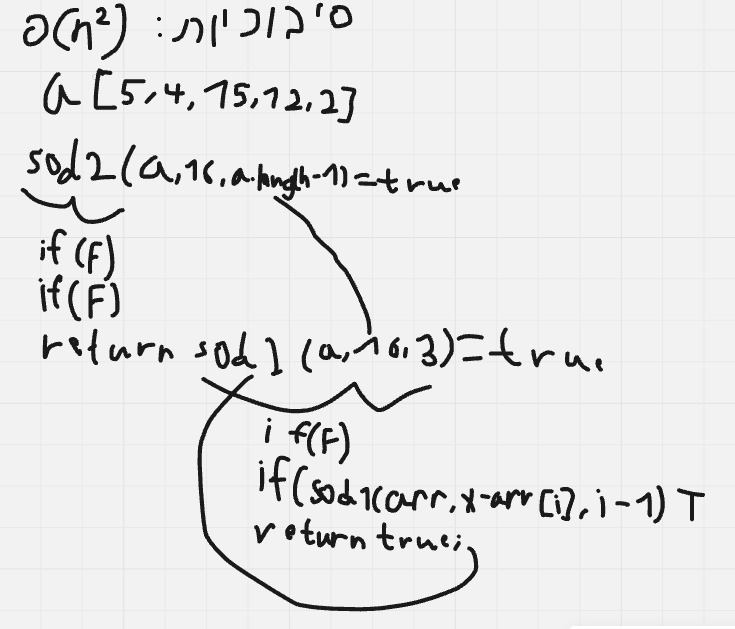 O(n²) : סיבוכיות
a [5,4,15,12,2]
sod2(a,16,a.length-1)=true
if(F)
if(F)
return sod1(a,16,3)=true
if(F)
if(sod1(arr,x-arr[i],i-1) T
return true;